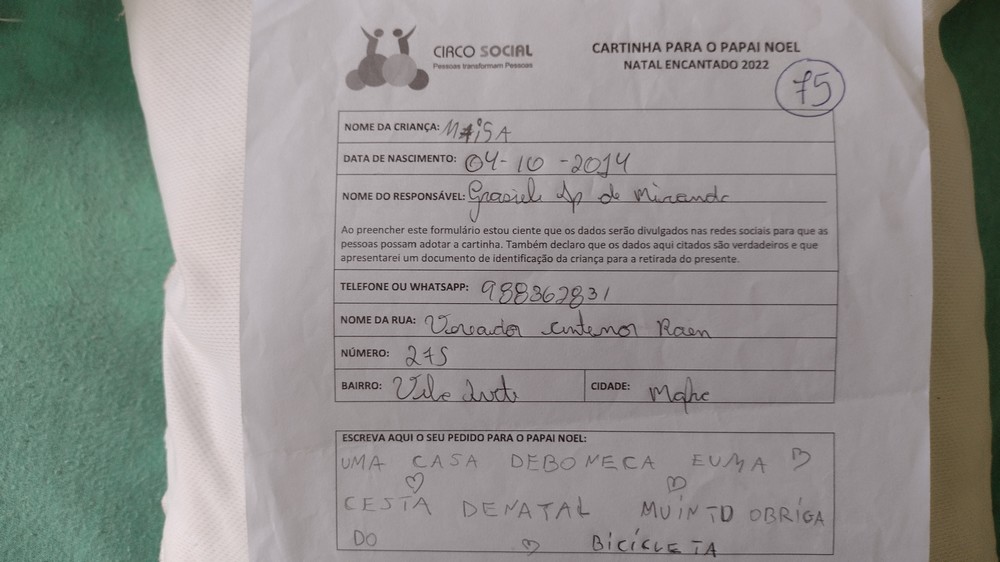 CIRCO SOCIAL
Pessoas transformam Pessoas
CARTINHA PARA O PAPAI NOEL
NATAL ENCANTADO 2022
75
NOME DA CRIANÇA: MAISA
DATA DE NASCIMENTO: 04-10-2014
NOME DO RESPONSÁVEL: Grasiele Ap de Miranda
Ao preencher este formulário estou ciente que os dados serão divulgados nas redes sociais para que as
pessoas possam adotar a cartinha. Também declaro que os dados aqui citados são verdadeiros e que
apresentarei um documento de identificação da criança para a retirada do presente.
TELEFONE OU WHATSAPP: 988362831
NOME DA RUA: Vereador Antenor
NÚMERO: 275
BAIRRO: Vila CIDADE:
ESCREVA AQUI O SEU PEDIDO PARA O PAPAI NOEL:
UMA CASA DEBONECA EUMA
CESTA DENATAL MUINTO OBRIGA
DO BICICLETA